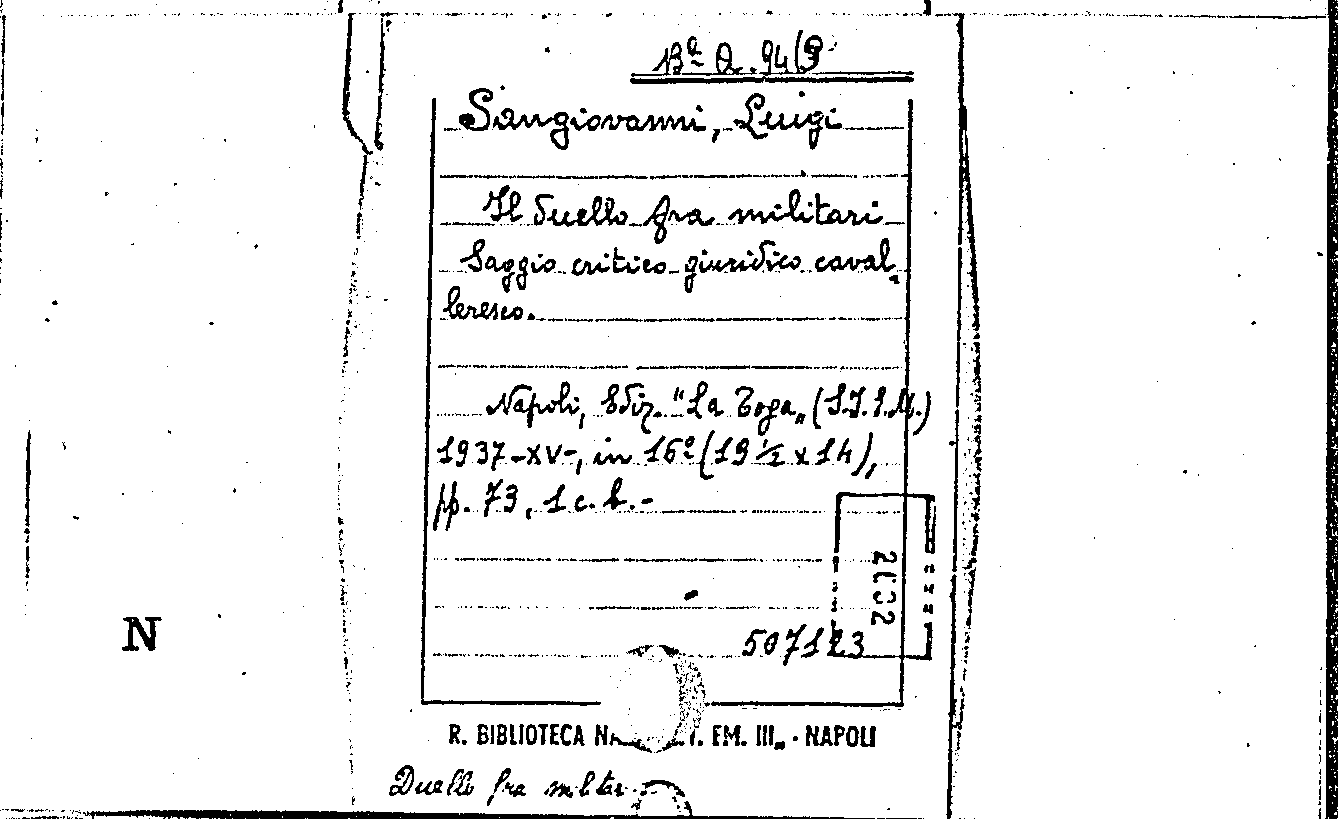 Bª Q. 94(9
Sangiovanni, Luigi
Il duello fra militari
Saggio critico giuridico caval,
leresco.
Napoli, Ediz. "La Toga„ (S.I.E.M.)
1937-XV-, in 16º (19 ½ x 14),
pp. 73, 1 c. b. -
2032
507123
N
R. BIBLIOTECA EM. III„ - NAPOLI
Duello fra militar